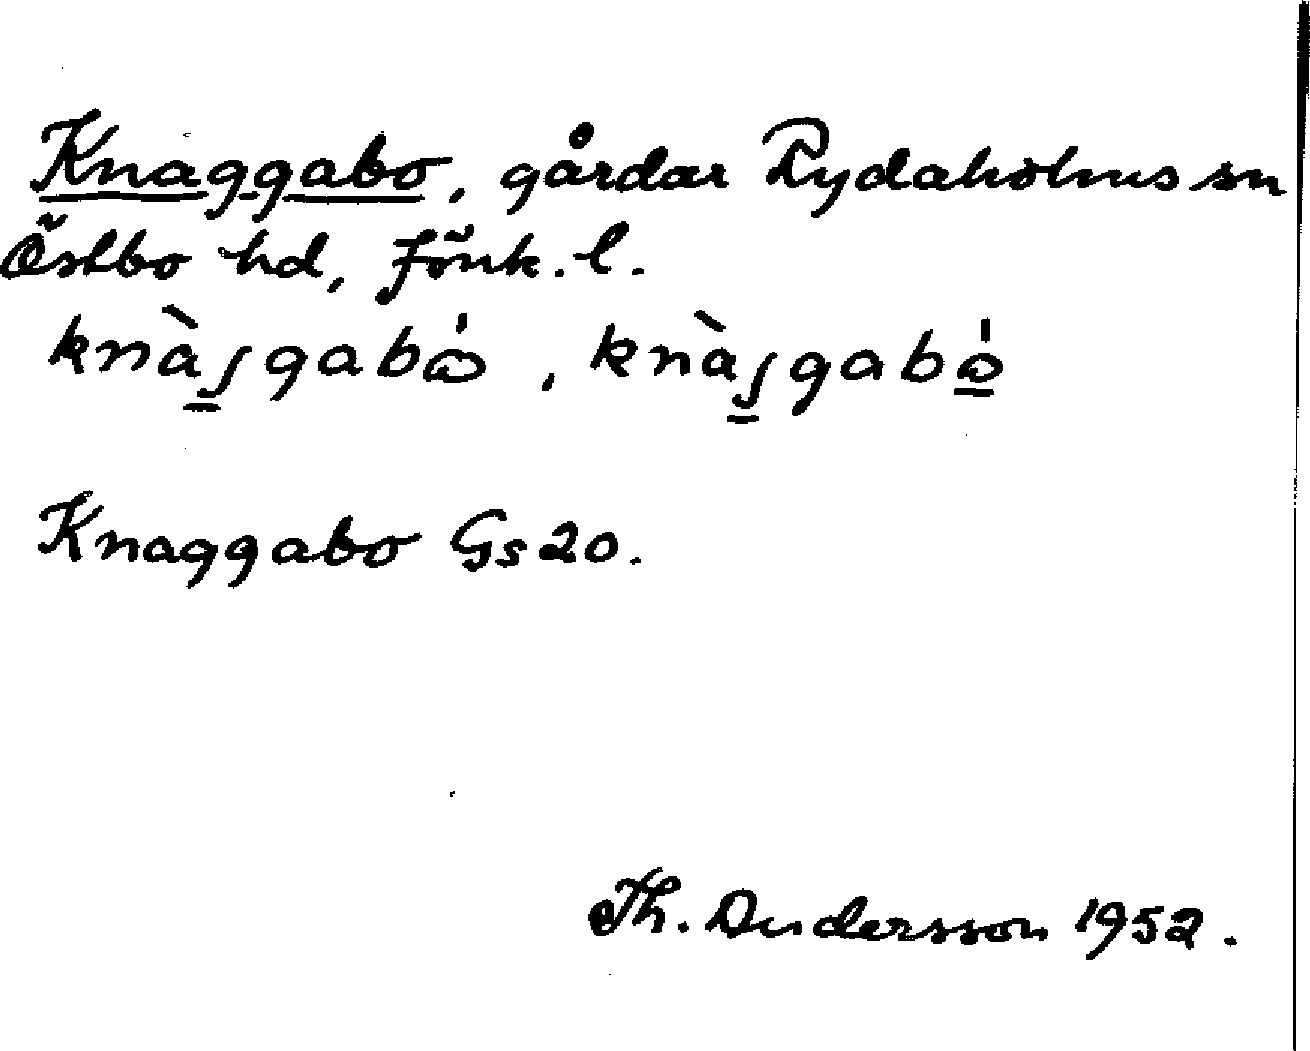 Knaggabo, gårdar Rydaholms sn
Östbo hd, Jönk. l.
knàʃgabω̇, knàʃgabò
Knaggabo Gs 20.
Th. Andersson 1952.